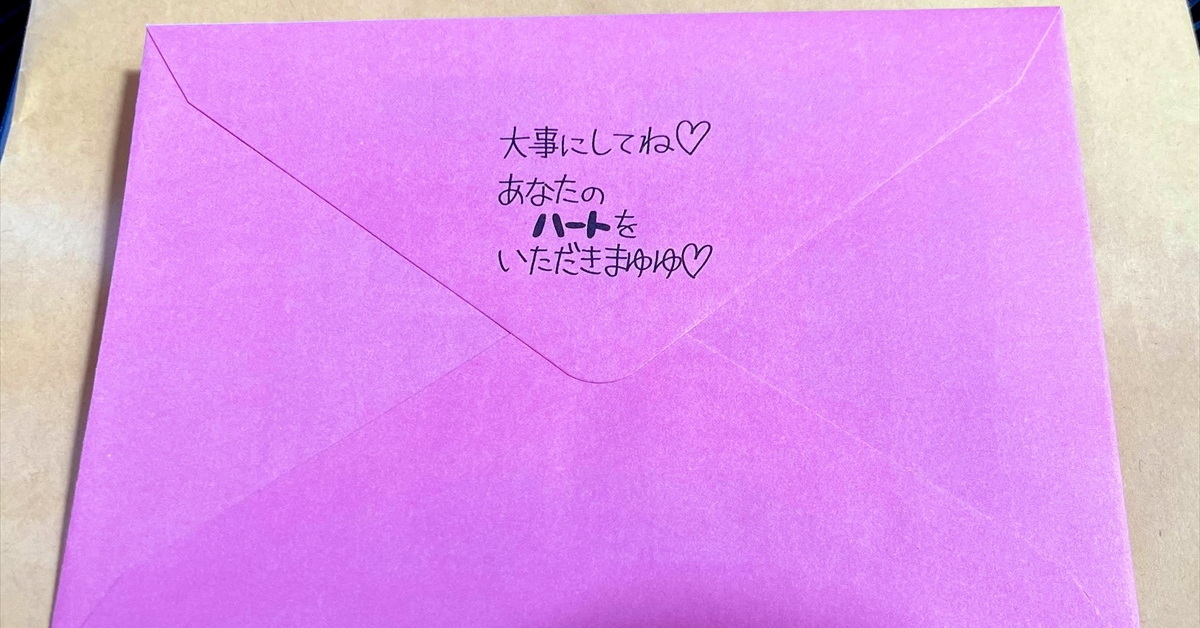 大事にしてね♡
あなたの
ハートを
いただきまゆゆ♡